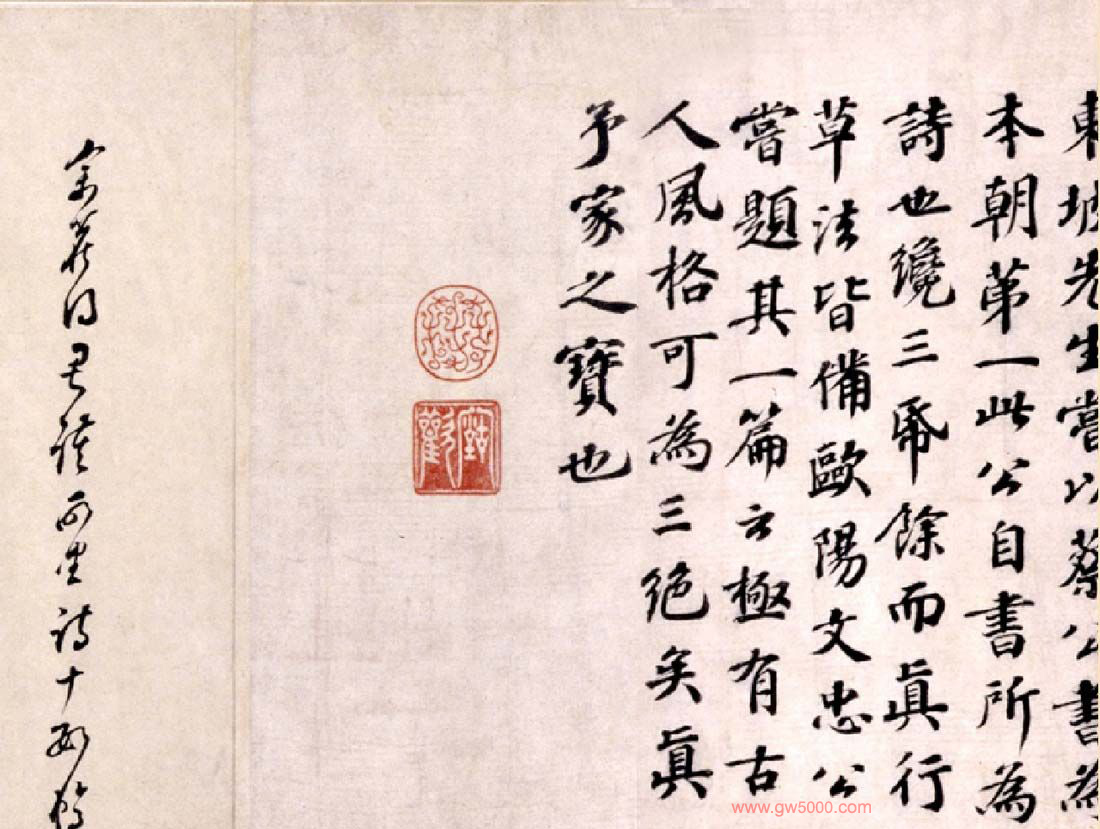 東坡先生嘗以蔡公書為
本朝第一此公自書所為
詩也纔三帋餘而眞行
草法皆備歐陽文忠公
嘗題其一篇云極有古
人風格可為三絕矣眞
予家之寶也
余篋得君謨詩十
www.gw5000.com